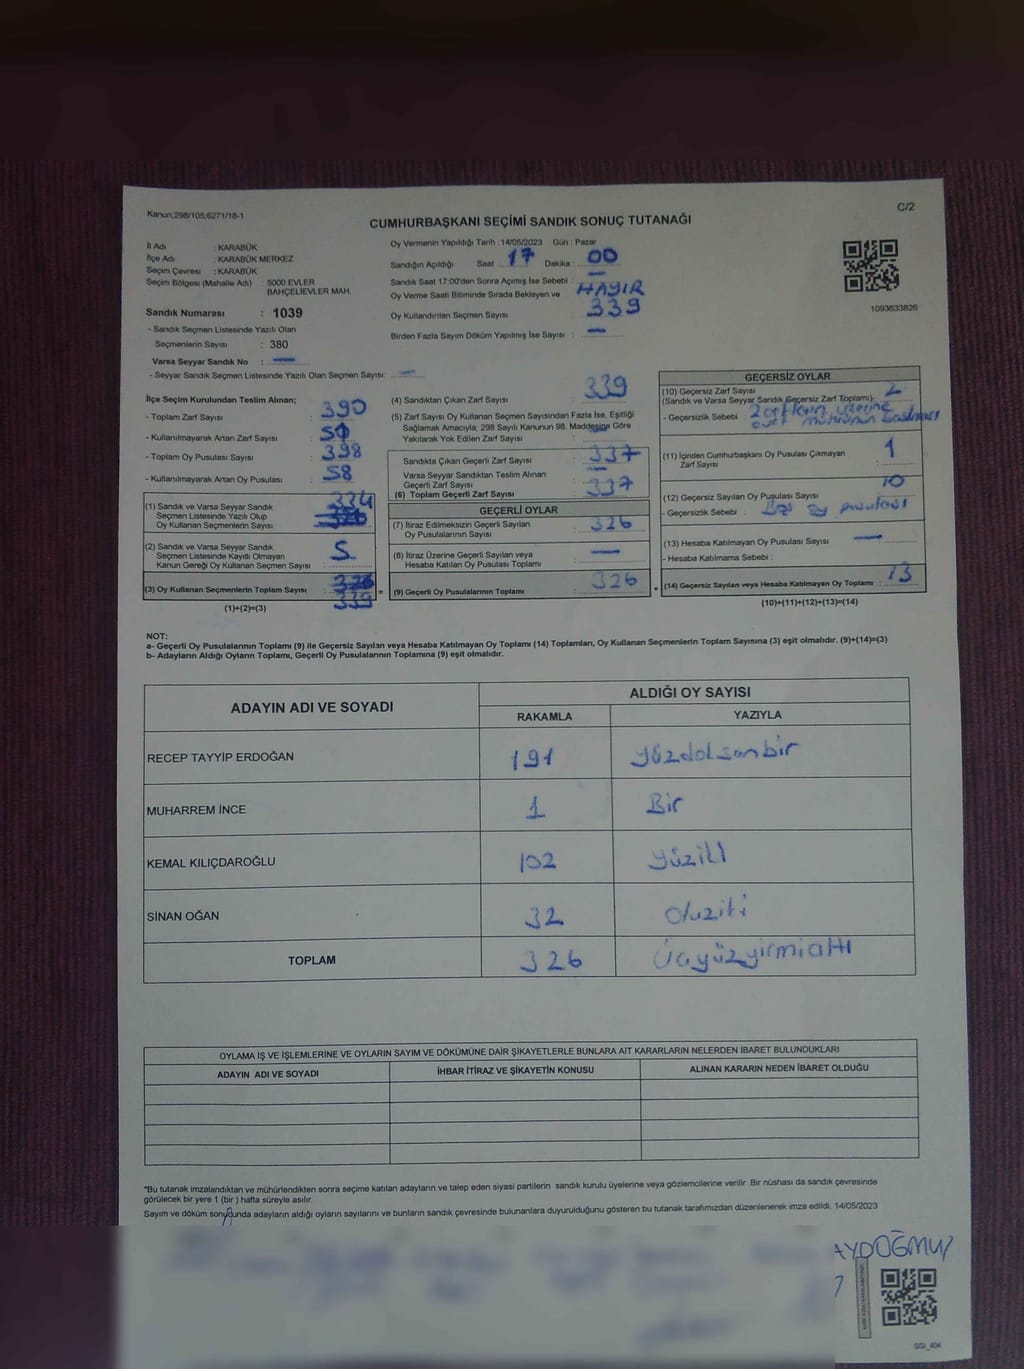 Kanun;298/105;6271/18-1
C/2
CUMHURBAŞKANI SEÇİMİ SANDIK SONUÇ TUTANAĞI
İl Adı : KARABÜK
İlçe Adı : KARABÜK MERKEZ
Seçim Çevresi : KARABÜK
Seçim Bölgesi (Mahalle Adı) : 5000 EVLER
BAHÇELİEVLER MAH.
Sandık Numarası : 1039
- Sandık Seçmen Listesinde Yazılı Olan
Seçmenlerin Sayısı : 380
Varsa Seyyar Sandık No : —
- Seyyar Sandık Seçmen Listesinde Yazılı Olan Seçmen Sayısı: —
Oy Vermenin Yapıldığı Tarih :14/05/2023 Gün : Pazar
Sandığın Açıldığı Saat : 17 Dakika : 00
Sandık Saat 17:00'den Sonra Açımış İse Sebebi : —
Oy Verme Saati Bitiminde Sırada Bekleyen ve : HAYIR
Oy Kullandırılan Seçmen Sayısı : 339
Birden Fazla Sayım Döküm Yapılmış İse Sayısı : —
1093633826
İlçe Seçim Kurulundan Teslim Alınan;
- Toplam Zarf Sayısı : 390
- Kullanılmayarak Artan Zarf Sayısı :
- Toplam Oy Pusulası Sayısı : 398
- Kullanılmayarak Artan Oy Pusulası : 58
(1) Sandık ve Varsa Seyyar Sandık
Seçmen Listesinde Yazılı Olup
Oy Kullanan Seçmenlerin Sayısı : 334
(2) Sandık ve Varsa Seyyar Sandık
Seçmen Listesinde Kayıtlı Olmayan
Kanun Gereği Oy Kullanan Seçmen Sayısı : 5
(3) Oy Kullanan Seçmenlerin Toplam Sayısı : 339
(1)+(2)=(3)
(4) Sandıktan Çıkan Zarf Sayısı : 339
(5) Zarf Sayısı Oy Kullanan Seçmen Sayısından Fazla İse, Eşitliği
Sağlamak Amacıyla; 298 Sayılı Kanunun 98. Maddesine Göre
Yakılarak Yok Edilen Zarf Sayısı : —
Sandıkta Çıkan Geçerli Zarf Sayısı : 337
Varsa Seyyar Sandıktan Teslim Alınan
Geçerli Zarf Sayısı : —
(6) Toplam Geçerli Zarf Sayısı : 337
GEÇERLİ OYLAR
(7) İtiraz Edilmeksizin Geçerli Sayılan
Oy Pusulalarının Sayısı : 326
(8) İtiraz Üzerine Geçerli Sayılan veya
Hesaba Katılan Oy Pusulası Toplamı : —
(9) Geçerli Oy Pusulalarının Toplamı : 326
GEÇERSİZ OYLAR
(10) Geçersiz Zarf Sayısı : 2
(Sandık ve Varsa Seyyar Sandık Geçersiz Zarf Toplamı)
- Geçersizlik Sebebi : üzerine
(11) İçinden Cumhurbaşkanı Oy Pusulası Çıkmayan
Zarf Sayısı : 1
(12) Geçersiz Sayılan Oy Pusulası Sayısı : 10
- Geçersizlik Sebebi : oy pusulası
(13) Hesaba Katılmayan Oy Pusulası Sayısı : —
- Hesaba Katılmama Sebebi :
(14) Geçersiz Sayılan veya Hesaba Katılmayan Oy Toplamı : 13
(10)+(11)+(12)+(13)=(14)
NOT:
a- Geçerli Oy Pusulalarının Toplamı (9) ile Geçersiz Sayılan veya Hesaba Katılmayan Oy Toplamı (14) Toplamları, Oy Kullanan Seçmenlerin Toplam Sayısına (3) eşit olmalıdır. (9)+(14)=(3)
b- Adayların Aldığı Oyların Toplamı, Geçerli Oy Pusulalarının Toplamına (9) eşit olmalıdır.
ADAYIN ADI VE SOYADI
ALDIĞI OY SAYISI
RAKAMLA YAZIYLA
RECEP TAYYİP ERDOĞAN 191 yüzdoksanbir
MUHARREM İNCE 1 Bir
KEMAL KILIÇDAROĞLU 102 yüziki
SİNAN OĞAN 32 otuziki
TOPLAM 326 Üçyüzyirmialtı
OYLAMA İŞ VE İŞLEMLERİNE VE OYLARIN SAYIM VE DÖKÜMÜNE DAİR ŞİKAYETLERLE BUNLARA AİT KARARLARIN NELERDEN İBARET BULUNDUKLARI
ADAYIN ADI VE SOYADI İHBAR İTİRAZ VE ŞİKAYETİN KONUSU ALINAN KARARIN NEDEN İBARET OLDUĞU
*Bu tutanak imzalandıktan ve mühürlendikten sonra seçime katılan adayların ve talep eden siyasi partilerin sandık kurulu üyelerine veya gözlemcilerine verilir .Bir nüshası da sandık çevresinde
görülecek bir yere 1 (bir ) hafta süreyle asılır.
Sayım ve döküm sonucunda adayların aldığı oyların sayılarını ve bunların sandık çevresinde bulunanlara duyurulduğunu gösteren bu tutanak tarafımızdan düzenlenerek imza edildi. 14/05/2023
AYDOĞMUŞ